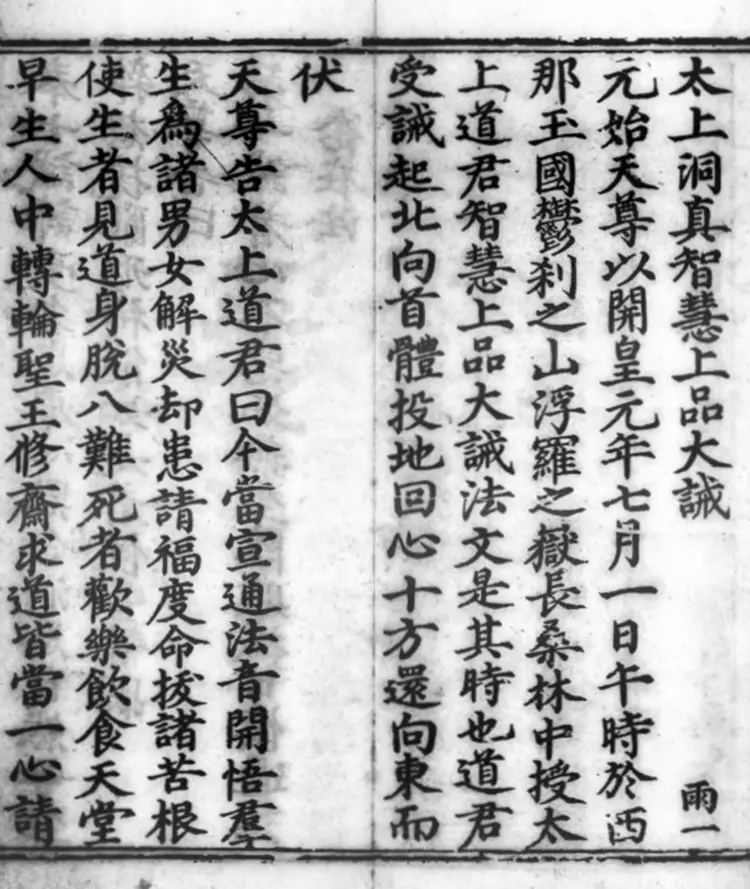 太上洞真智慧上品大誡 雨一
元始天尊以開皇元年七月一日午時於西
那玉國鬱刹之山浮羅之嶽長桑林中授太
上道君智慧上品大誡法文是其時也道君
受誡起北向首體投地回心十方還向東而
伏
天尊告太上道君曰今當宣通法音開悟羣
生爲諸男女解災却患請福度命拔諸苦根
使生者見道身脫八難死者歡樂飲食天堂
早生人中轉輪聖王修齋求道皆當一心請